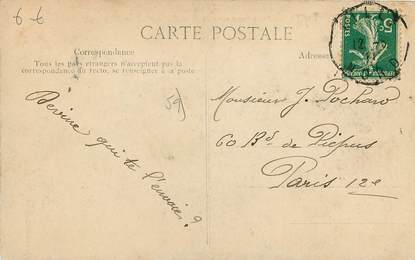 6-6
CARTE POSTALE
Correspondance
Tous les pays étrangers n'acceptent pas la
correspondance du recto, se renseigner à la poste
Adresse
5
POSTES
Devine qui te l'envoie?
Monsieur J. Pochard
60 Bd de Picpus
Paris 12e